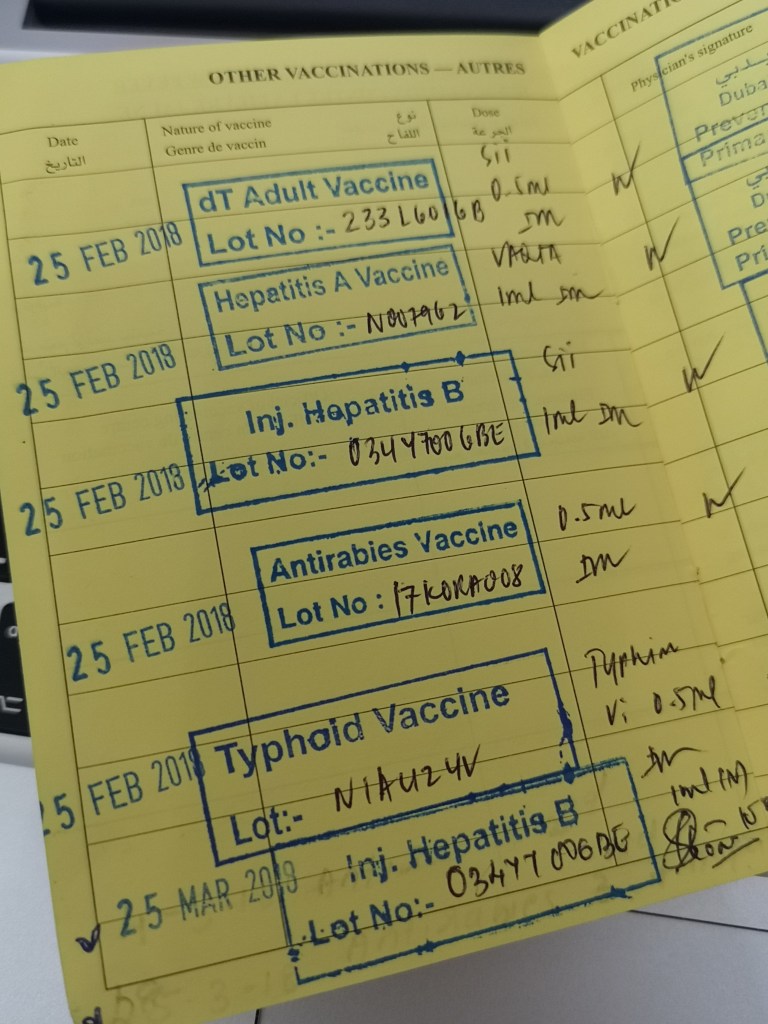 OTHER VACCINATIONS — AUTRES
Date
التاريخ
Nature of vaccine نوع
Genre de vaccin اللقاح
Dose
الجرعة
25 FEB 2018
dT Adult Vaccine
Lot No :- 233L6016B
SII
0.5ml
IM
25 FEB 2018
Hepatitis A Vaccine
Lot No :- N007962
VAQTA
1ml IM
25 FEB 2018
Inj. Hepatitis B
Lot No:-
SII
1ml IM
25 FEB 2018
Antirabies Vaccine
Lot No :
0.5ml
IM
25 FEB 2018
Typhoid Vaccine
Lot:-
Typhim
Vi 0.5ml
IM
25 MAR 2018
Inj. Hepatitis B
Lot No:-
1ml IM
VACCINATI
Physician's signature
دبي
Duba
Preven
Prima
دبي
D
Pre
Pri